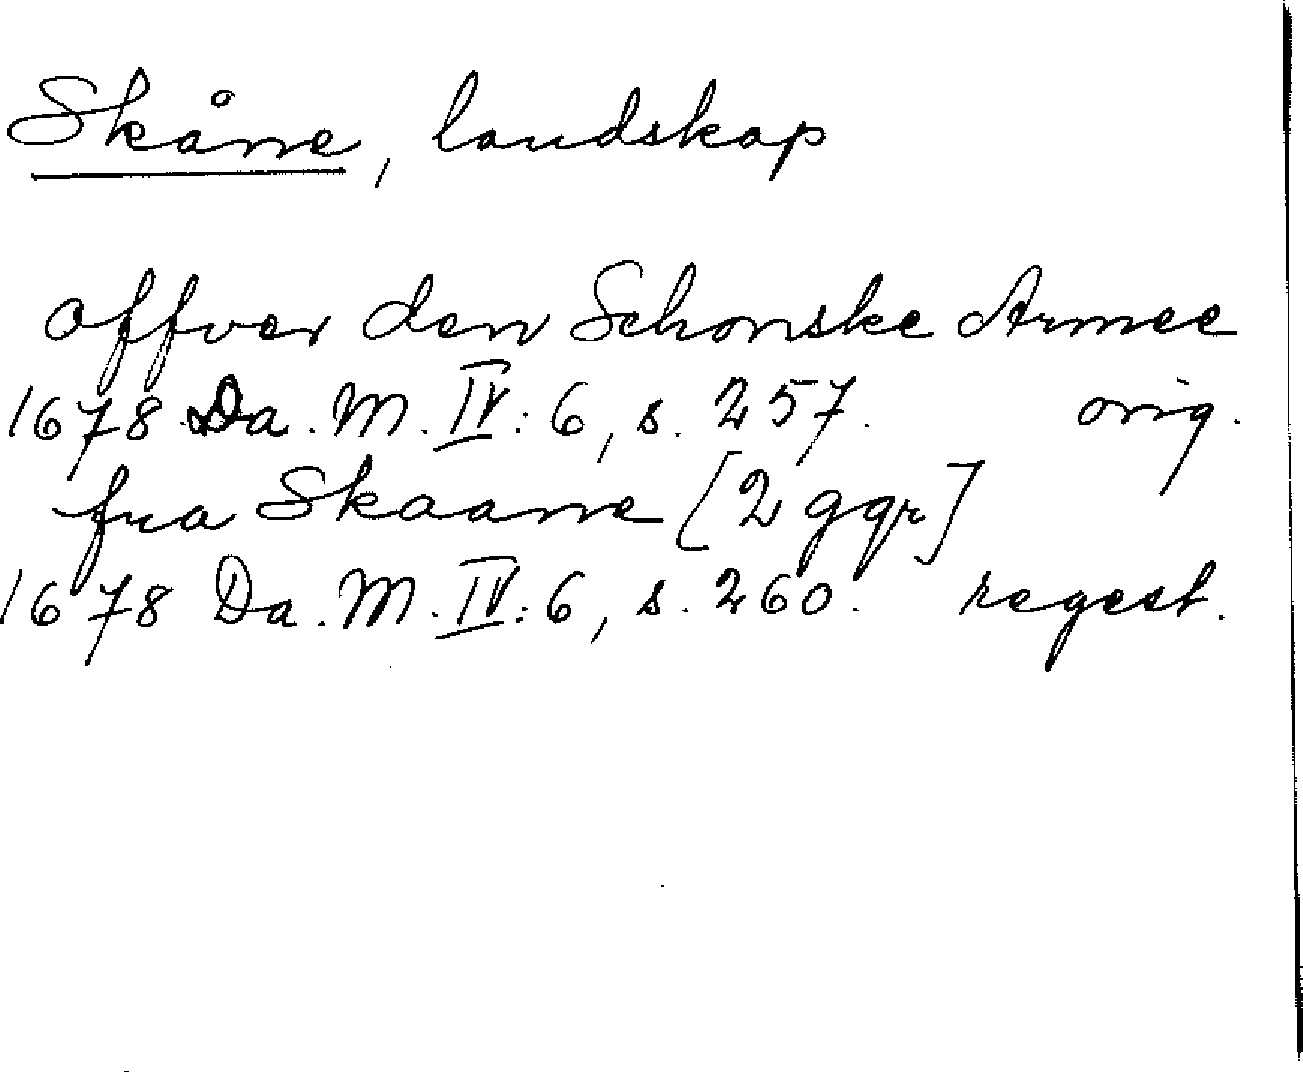 Skåne, landskap
offver den Schonske Armee
1678 Da. M. IV: 6, s. 257. orig.
fra Skaane [2 ggr]
1678 Da. M. IV: 6, s. 260. regest.